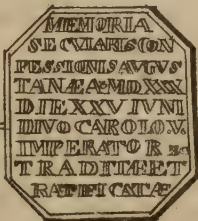 MEMORIA
SECVLARIS CON
FESSIONIS AVGVS
TANÆ Aº MDXXX
DIE XXV IVNI
DIVO CAROLO.V.
IMPERATORE
TRADITÆ ET
RATIFICATÆ